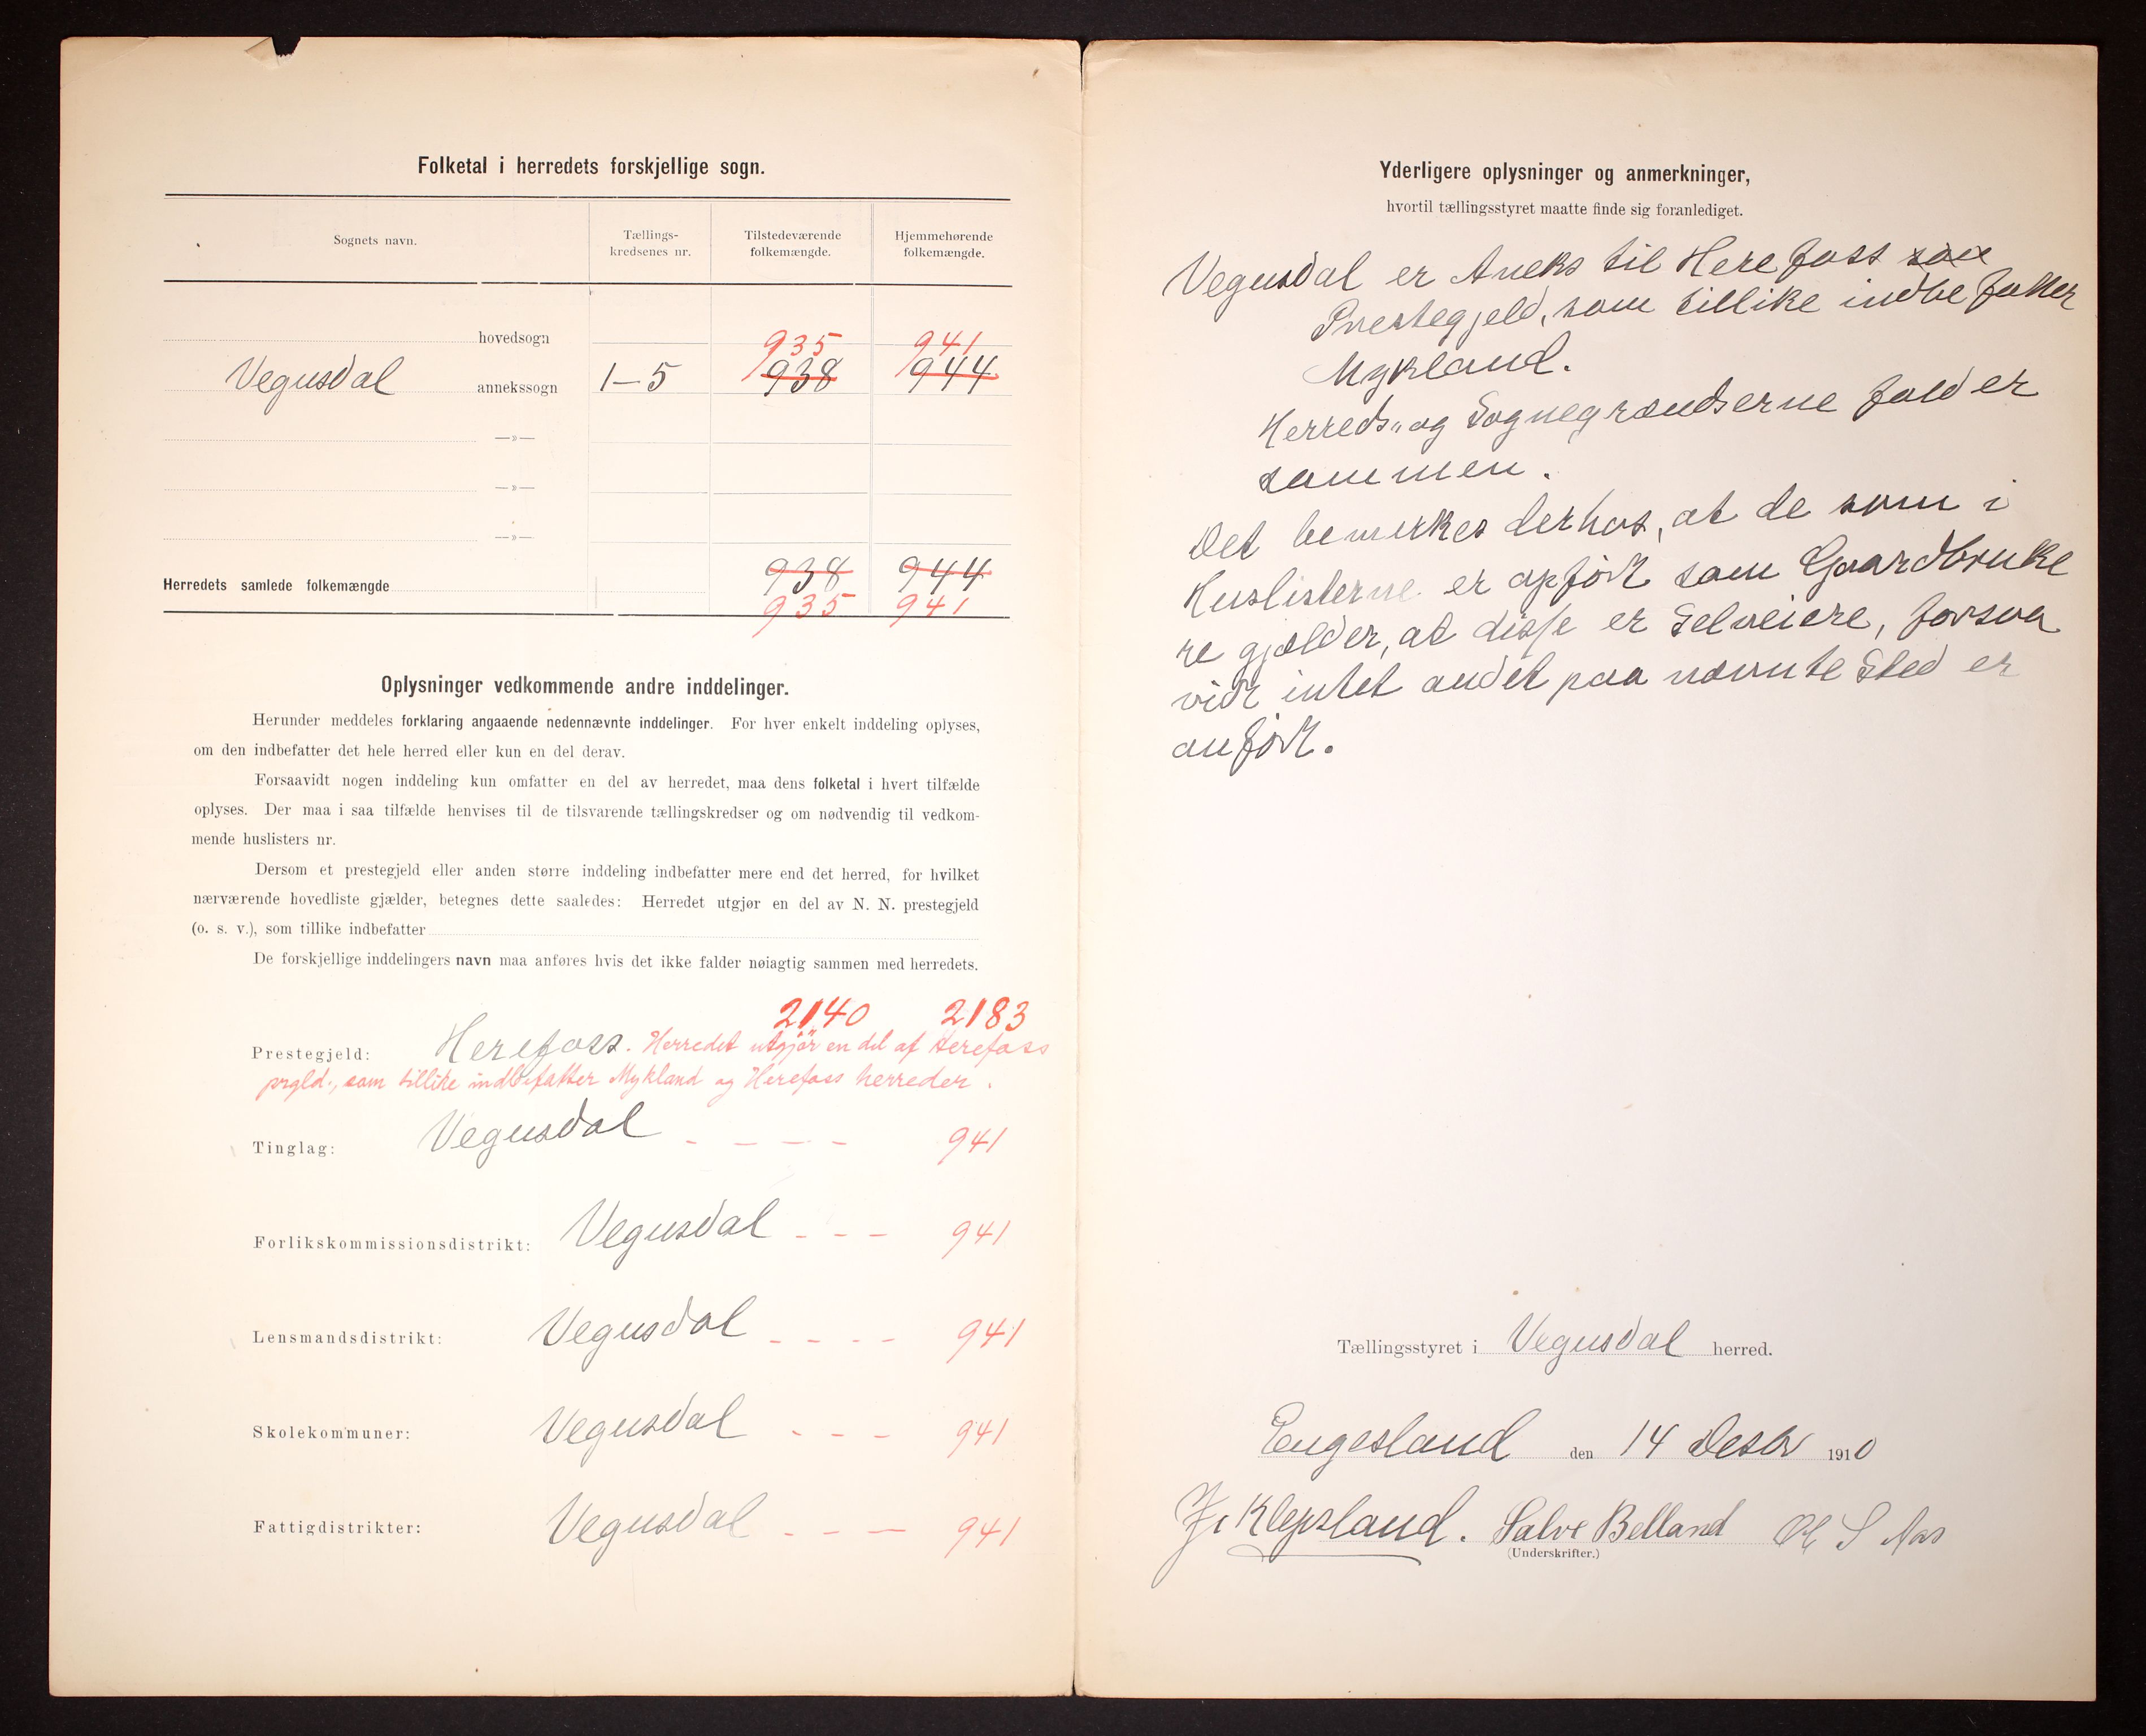 Folketal i herredets forskjellige sogn.
Sognets navn.
Tællings-
kredsenes nr.
Tilstedeværende
folkemængde.
Hjemmehørende
folkemængde.
hovedsogn
935 941
Vegusdal annekssogn 1-5 938 944
—»—
—»—
—»—
938 944
Herredets samlede folkemængde
935 941
Oplysninger vedkommende andre inddelinger.
Herunder meddeles forklaring angaaende nedennævnte inddelinger. For hver enkelt inddeling oplyses,
om den indbefatter det hele herred eller kun en del derav.
Forsaavidt nogen inddeling kun omfatter en del av herredet, maa dens folketal i hvert tilfælde
oplyses. Der maa i saa tilfælde henvises til de tilsvarende tællingskredser og om nødvendig til vedkom-
mende huslisters nr.
Dersom et prestegjeld eller anden større inddeling indbefatter mere end det herred, for hvilket
nærværende hovedliste gjælder, betegnes dette saaledes: Herredet utgjør en del av N. N. prestegjeld
(o. s. v.), som tillike indbefatter
De forskjellige inddelingers navn maa anføres hvis det ikke falder nøiagtig sammen med herredets.
2140 2183
Prestegjeld: Herefoss. Herredet utgjør en del af Herefoss
prgld., som tillike indbefatter Mykland og Herefoss herreder.
Tinglag: Vegusdal - — — - 941
Forlikskommissionsdistrikt: Vegusdal - - - 941
Lensmandsdistrikt: Vegusdal - - - - 941
Skolekommuner: Vegusdal - - - 941
Fattigdistrikter: Vegusdal - - — 941
Yderligere oplysninger og anmerkninger,
hvortil tællingsstyret maatte finde sig foranlediget.
Vegusdal er Aneks til Herefoss som
Prestegjeld, som tillike indbefatter
Mykland.
Herreds- og Sognegrændserne falder
sammen.
Det bemerkes derhos, at de som i
Huslisterne er opført som Gaardbruke
re gjælder, at disse er Selveiere, forsaa
vidt intet andet paa nævnte Sted er
anført.
Tællingsstyret i Vegusdal herred.
Engesland den 14 Desbr 1910
Klepsland. Salve Belland Ol S Aas
(Underskrifter.)